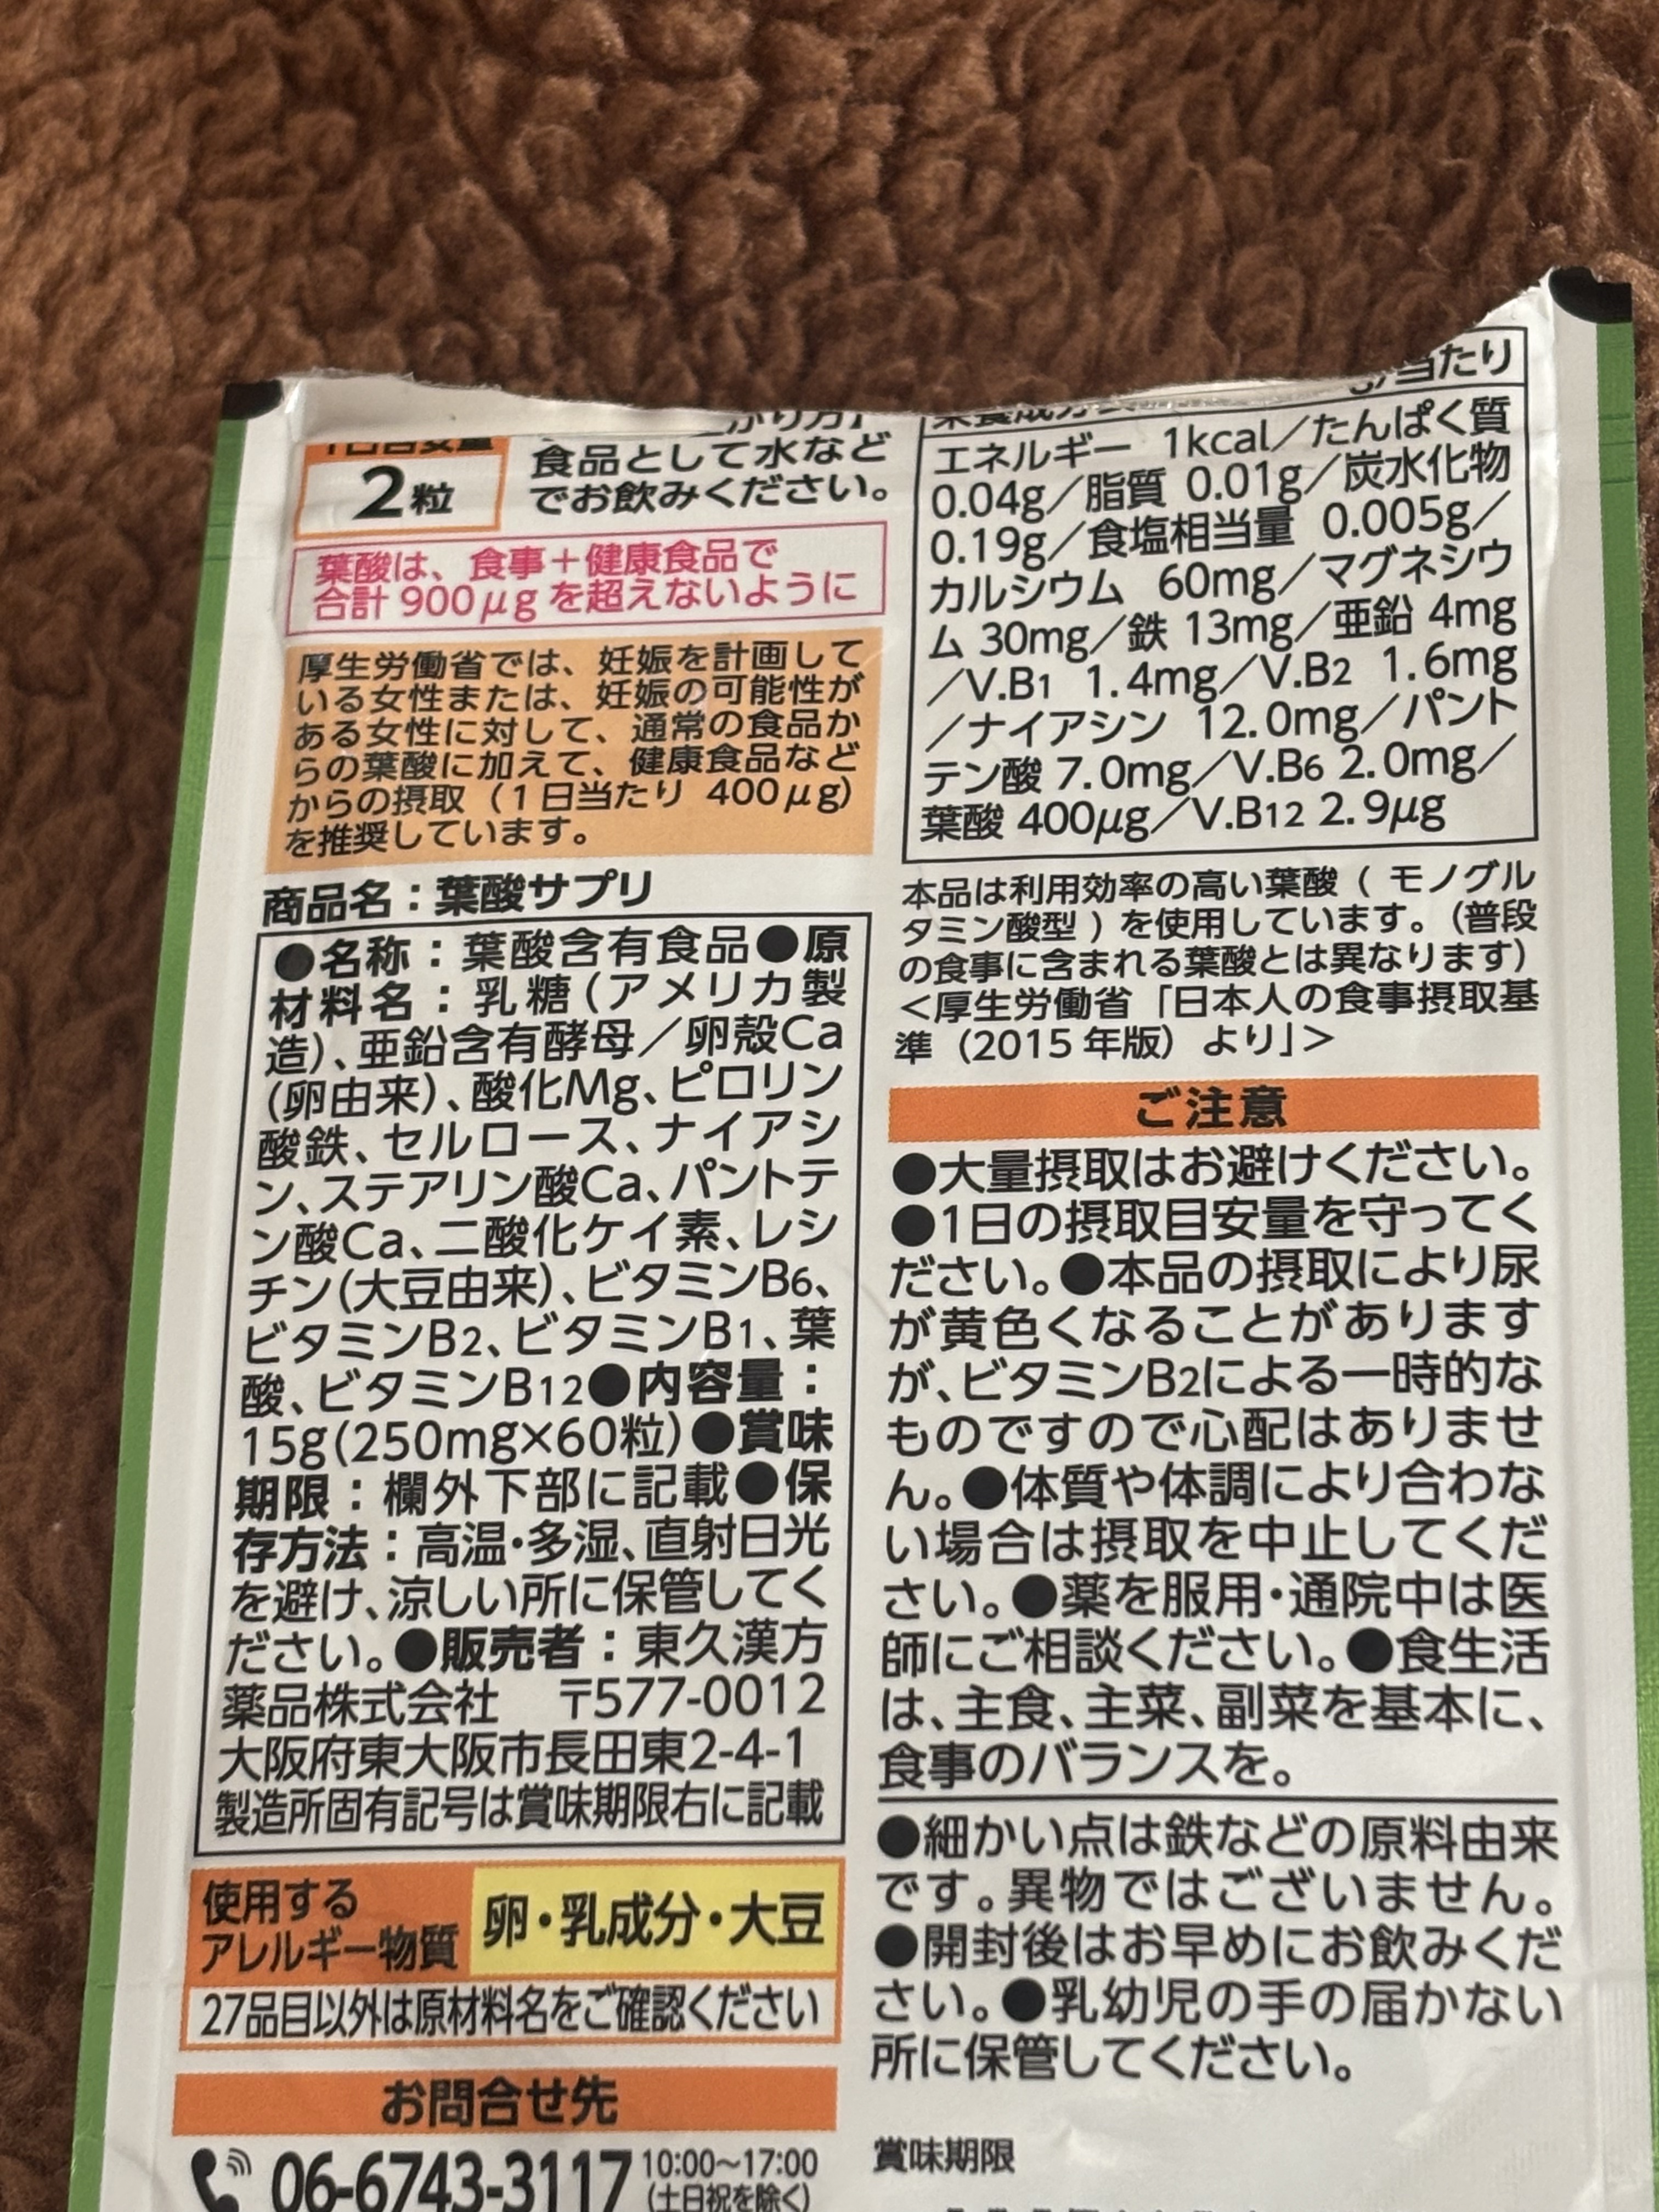 1日目安量
2粒
食品として水など
でお飲みください。
葉酸は、食事＋健康食品で
合計 900μg を超えないように
厚生労働省では、妊娠を計画して
いる女性または、妊娠の可能性が
ある女性に対して、通常の食品か
らの葉酸に加えて、健康食品など
からの摂取（1日当たり 400μg）
を推奨しています。
商品名：葉酸サプリ
●名称：葉酸含有食品●原
材料名：乳糖（アメリカ製
造）、亜鉛含有酵母／卵殻Ca
（卵由来）、酸化Mg、ピロリン
酸鉄、セルロース、ナイアシ
ン、ステアリン酸Ca、パントテ
ン酸Ca、二酸化ケイ素、レシ
チン（大豆由来）、ビタミンB6、
ビタミンB2、ビタミンB1、葉
酸、ビタミンB12●内容量：
15g(250mg×60粒)●賞味
期限：欄外下部に記載●保
存方法：高温・多湿、直射日光
を避け、涼しい所に保管してく
ださい。●販売者：東久漢方
薬品株式会社　〒577-0012
大阪府東大阪市長田東2-4-1
製造所固有記号は賞味期限右に記載
使用する
アレルギー物質
卵・乳成分・大豆
27品目以外は原材料名をご確認ください
お問合せ先
06-6743-3117
10:00～17:00
（土日祝を除く）
当たり
エネルギー 1kcal／たんぱく質
0.04g／脂質 0.01g／炭水化物
0.19g／食塩相当量 0.005g／
カルシウム 60mg／マグネシウ
ム 30mg／鉄 13mg／亜鉛 4mg
／V.B1 1.4mg／V.B2 1.6mg
／ナイアシン 12.0mg／パント
テン酸 7.0mg／V.B6 2.0mg／
葉酸 400μg／V.B12 2.9μg
本品は利用効率の高い葉酸（ モノグル
タミン酸型 ）を使用しています。（普段
の食事に含まれる葉酸とは異なります）
＜厚生労働省「日本人の食事摂取基
準（2015 年版）より」＞
ご注意
●大量摂取はお避けください。
●1日の摂取目安量を守ってく
ださい。●本品の摂取により尿
が黄色くなることがあります
が、ビタミンB2による一時的な
ものですので心配はありませ
ん。●体質や体調により合わな
い場合は摂取を中止してくだ
さい。●薬を服用・通院中は医
師にご相談ください。●食生活
は、主食、主菜、副菜を基本に、
食事のバランスを。
●細かい点は鉄などの原料由来
です。異物ではございません。
●開封後はお早めにお飲みくだ
さい。●乳幼児の手の届かない
所に保管してください。
賞味期限